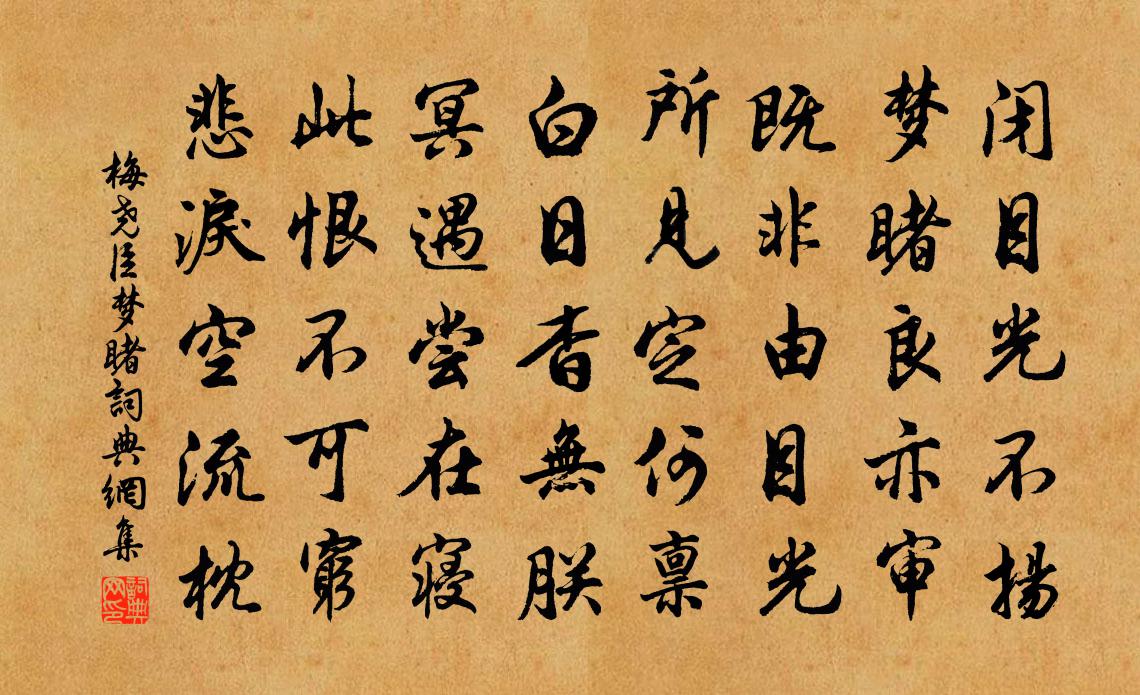 闭目光不揚
梦睹良亦审
既非由目光
所見定何禀
白日杳無朕
冥遇尝在寝
此恨不可窮
悲淚空流枕
梅尧臣梦睹詞典網集
詞典网印